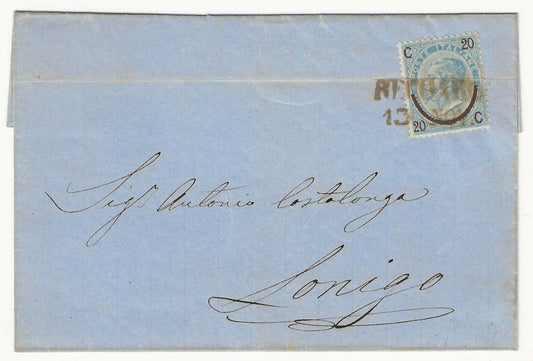 C 20
POSTE ITALIANE
20 C
13
Sigr Antonio Costalonga
Lonigo